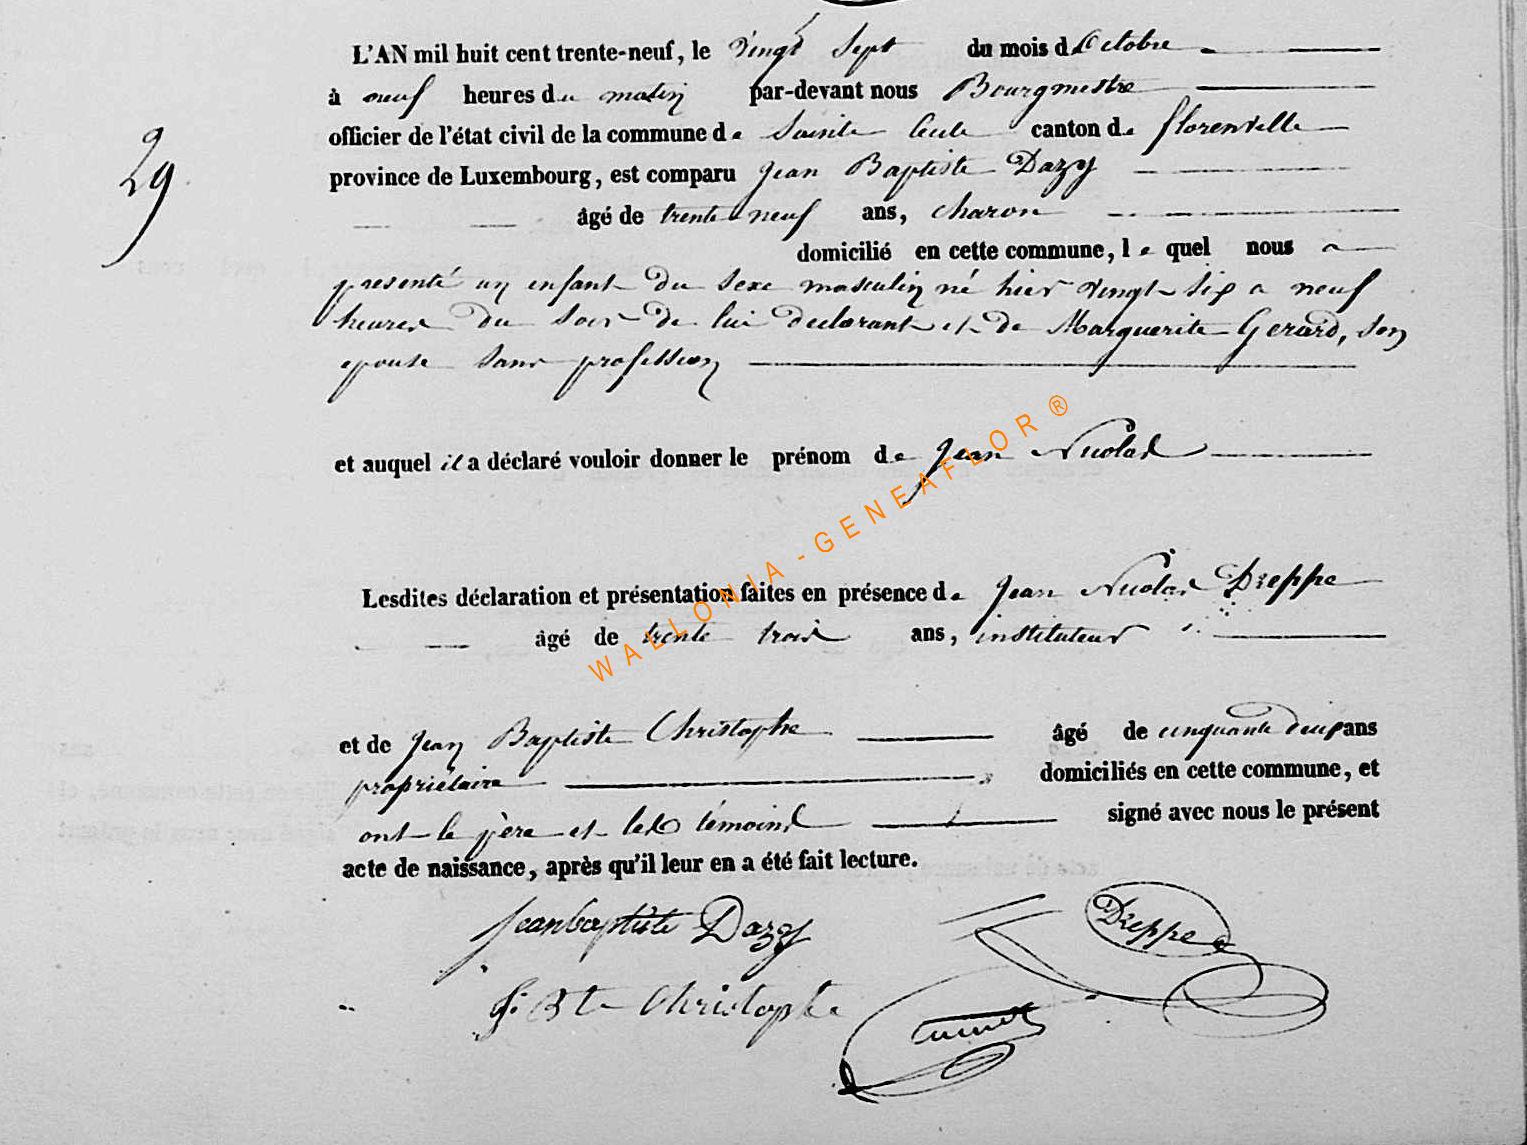 L'AN mil huit cent trente-neuf, le vingt sept du mois d'Octobre
à neuf heures du matin par-devant nous Bourgmestre
officier de l'état civil de la commune de Sainte Cecile canton de florenville
29
province de Luxembourg, est comparu Jean Baptiste Dazy
âgé de trente neuf ans, charon
domicilié en cette commune, le quel nous a
presenté un enfant du sexe masculin né hier vingt six a neuf
heures du soir de lui declarant et de Marguerite Gerard, son
epouse sans profession
et auquel il a déclaré vouloir donner le prénom de Jean Nicolas
WALLONIA - GENEAFLOR ®
Lesdites déclaration et présentation faites en présence de Jean Nicolas Dreppe
âgé de trente trois ans, instituteur
et de Jean Baptiste Christophe âgé de cinquante deux ans
propriétaire domiciliés en cette commune, et
ont le père et les témoins signé avec nous le présent
acte de naissance, après qu'il leur en a été fait lecture.
Jean baptiste Dazy Dreppe
J. Bte Christophe